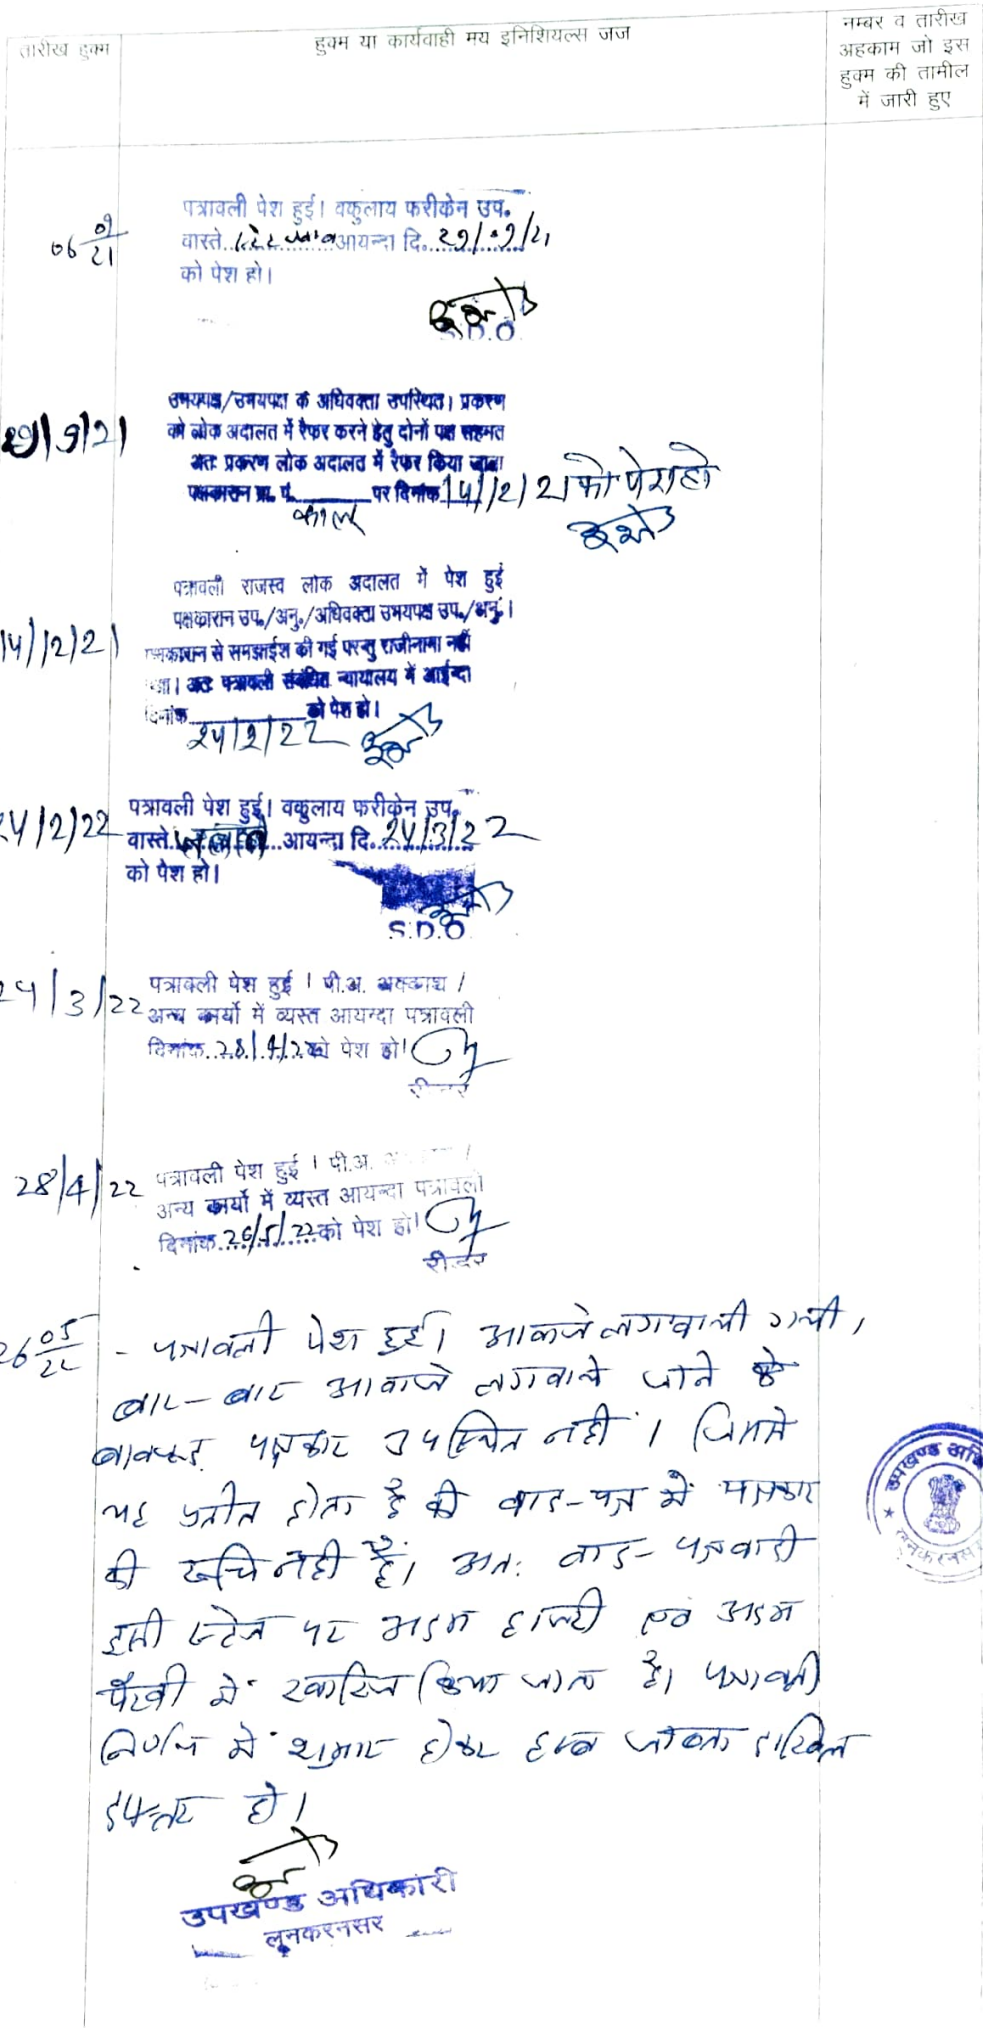 तारीख हुक्म
हुक्म या कार्यवाही मय इनिशियल्स जज
नम्बर व तारीख
अहकाम जो इस
हुक्म की तामील
में जारी हुए
06 09/21
पत्रावली पेश हुई। वकुलाय फरीकेन उप.
वास्ते आयन्दा दि. 29/09/21
को पेश हो।
S.D.O.
29/9/21
उभयपक्ष/उभयपक्ष के अधिवक्ता उपस्थित। प्रकरण
को लोक अदालत में रैफर करने हेतु दोनों पक्ष सहमत
अतः प्रकरण लोक अदालत में रैफर किया जाता
पक्षकारान प्रा. पं. पर दिनांक 14/12/21 को पेश हो
कालू
14/12/21
पत्रावली राजस्व लोक अदालत में पेश हुई
पक्षकारान उप./अनु./अधिवक्ता उभयपक्ष उप./अनु.।
पक्षकारान से समझाईश की गई परन्तु राजीनामा नहीं
अतः पत्रावली संबंधित न्यायालय में आईन्दा
दिनांक को पेश हो।
24/2/22
24/2/22
पत्रावली पेश हुई। वकुलाय फरीकेन उप.
वास्ते आयन्दा दि. 24/3/22
को पेश हो।
S.D.O
24/3/22
पत्रावली पेश हुई । पी.अ. अवकाश /
अन्य कार्यो में व्यस्त आयन्दा पत्रावली
दिनांक 28/4/22 को पेश हो।
रीडर
28/4/22
पत्रावली पेश हुई । पी.अ. /
अन्य कार्यो में व्यस्त आयन्दा पत्रावली
दिनांक 26/5/22 को पेश हो।
रीडर
26 05/22 - पत्रावली पेश हुई। आवाजे लगवायी गयी,
बार-बार आवाजे लगवाये जाने के
बावजूद पक्षकार उपस्थित नही । जिससे
यह प्रतीत होता है की वाद-पत्र में पक्षकार
की रूचि नही है। अतः वाद-पत्र वादी
इसी स्टेज पर अदम हाजरी एवं अदम
पैरवी में खारिज किया जाता है। पत्रावली
निर्णय में शुमार होकर दाखिल
दफ्तर हो।
उपखण्ड अधिकारी
लूनकरनसर
उपखण्ड अधि
लूनकरनसर